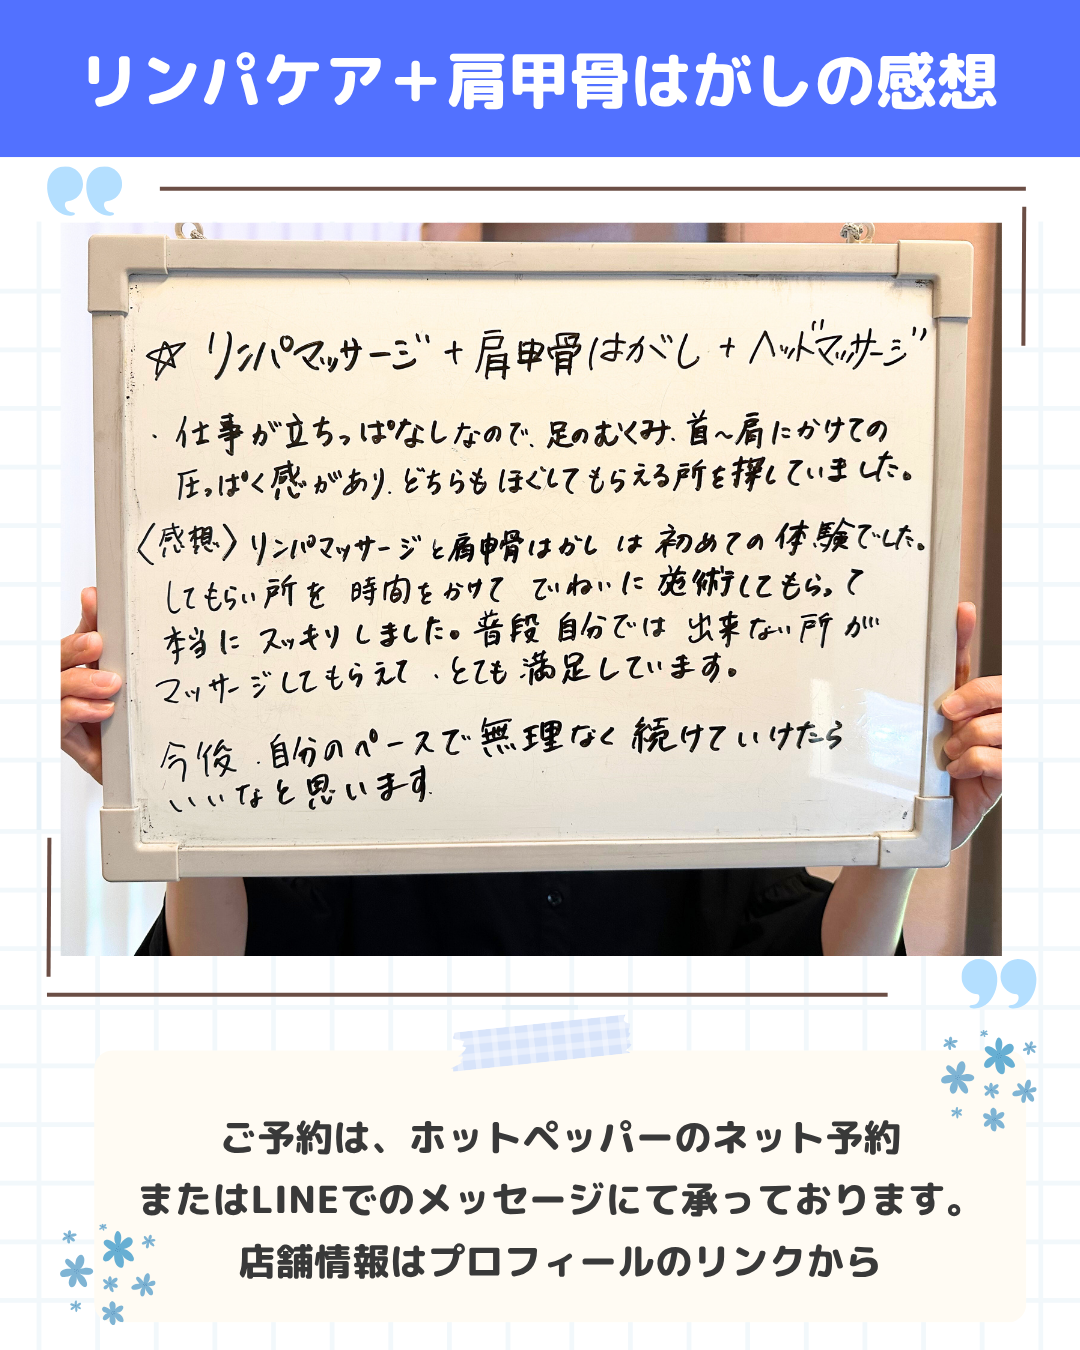 リンパケア＋肩甲骨はがしの感想
☆ リンパマッサージ + 肩甲骨はがし + ヘッドマッサージ
・仕事が立ちっぱなしなので、足のむくみ、首〜肩にかけての
圧っぱく感があり、どちらもほぐしてもらえる所を探していました。
〈感想〉リンパマッサージと肩甲骨はがし は 初めての体験でした。
してもらい所を 時間をかけて ていねいに 施術してもらって
本当に スッキリしました。普段 自分では 出来ない所が
マッサージしてもらえて、とても満足しています。
今後、自分のペースで無理なく続けていけたら
いいなと思います。
ご予約は、ホットペッパーのネット予約
またはLINEでのメッセージにて承っております。
店舗情報はプロフィールのリンクから